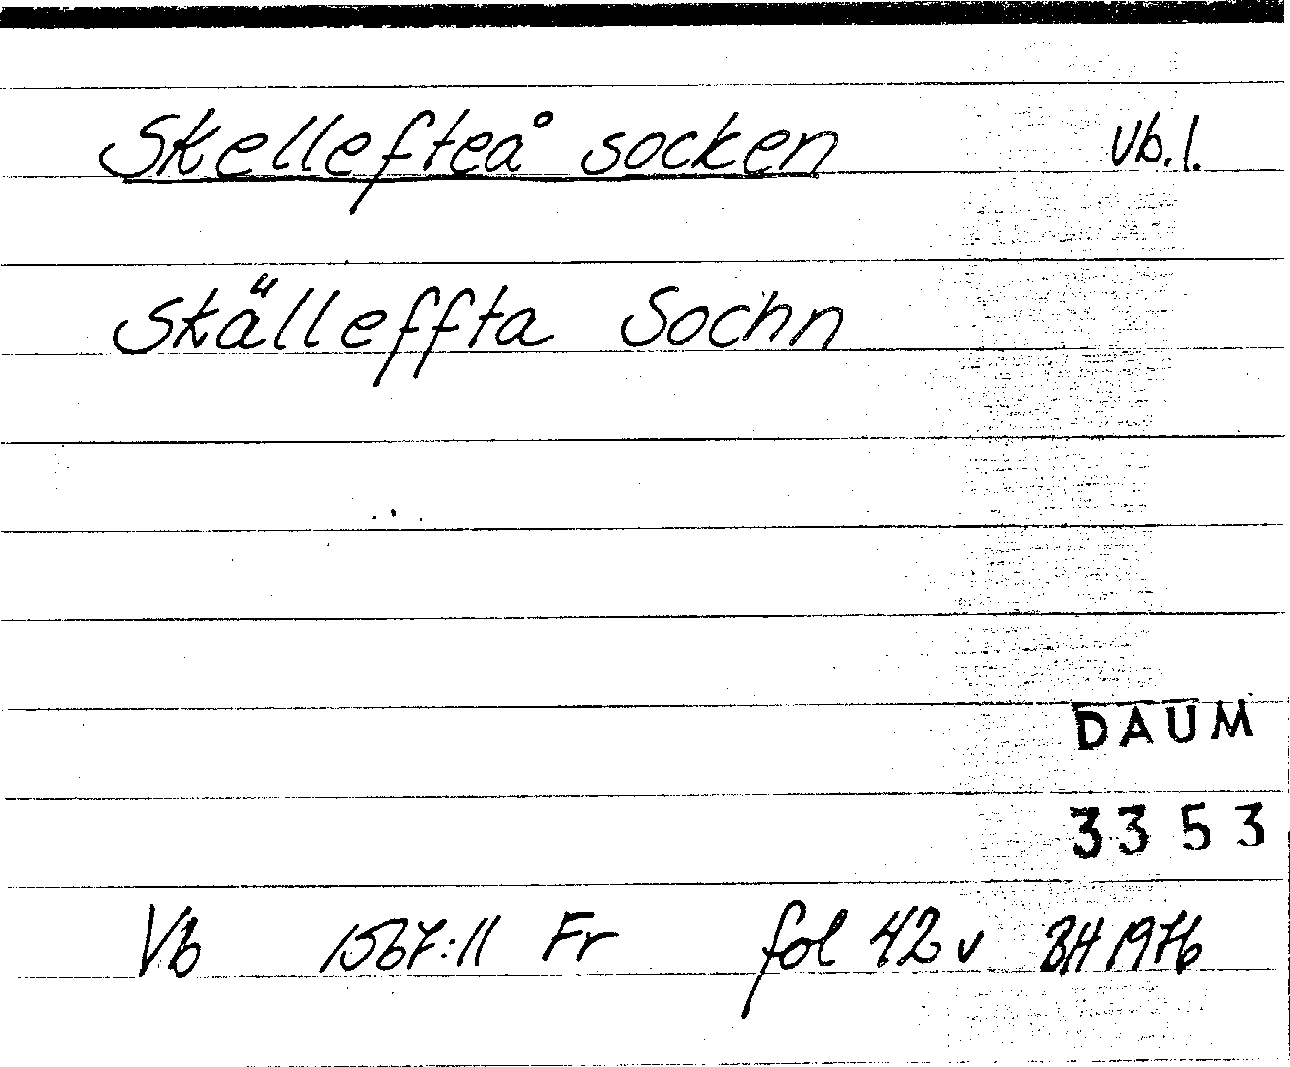 Skellefteå socken Vb. l.
Skälleffta Sochn
DAUM
3353
Vb 1567:11 Fr fol 42 v BH 1976